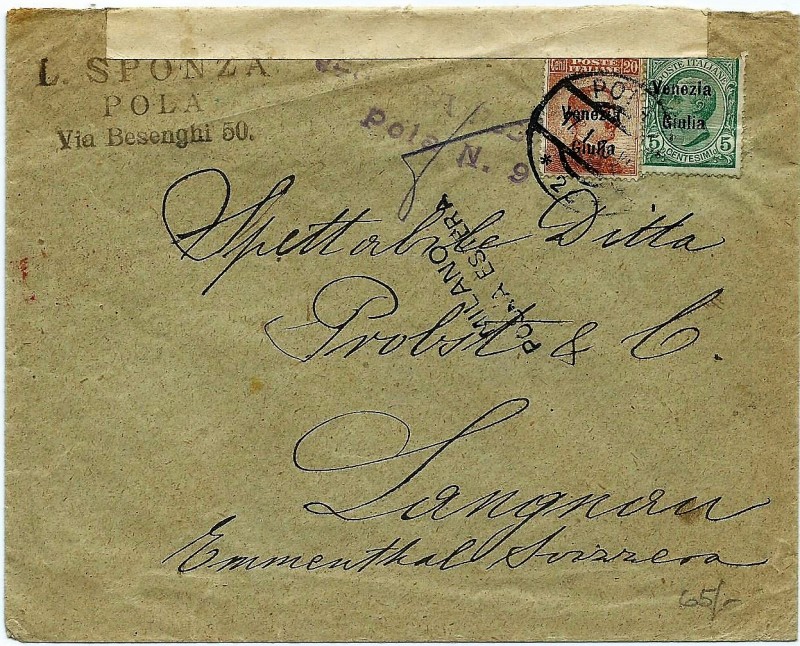 L. SPONZA
POLA
Via Besenghi 50.
Pola N. 9
POSTE
ITALIANE
Cent
20
Venezia
Giulia
POSTE ITALIANE
Venezia
Giulia
5 CENTESIMI 5
MILANO
POSTA ESTERA
Spettabile Ditta
Probst & C.
Langnau
Emmenthal Svizzera
65/-